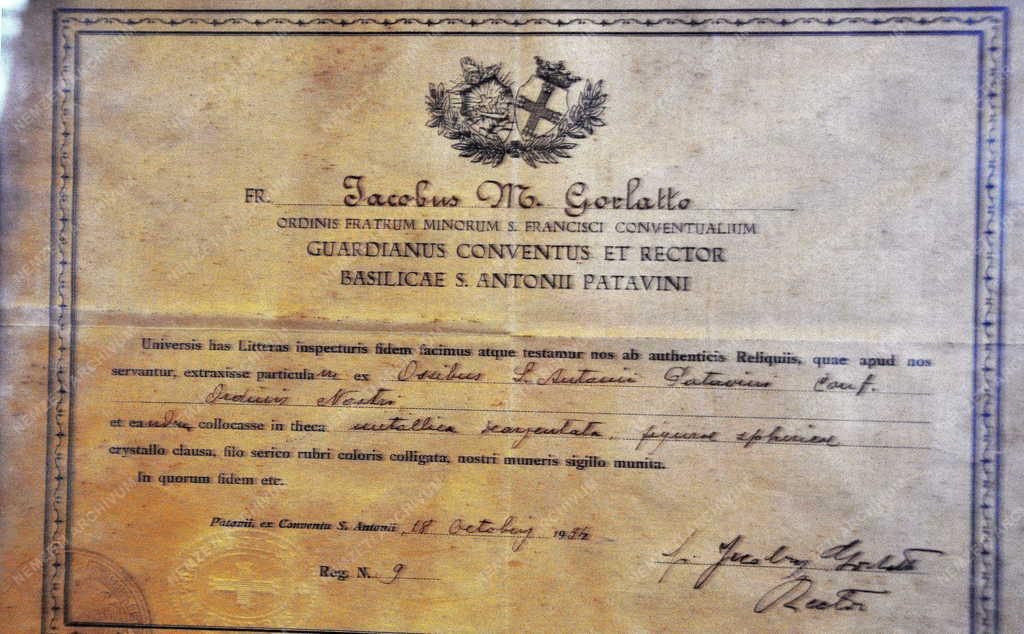 FR. Jacobus M. Gorlatto
ORDINIS FRATRUM MINORUM S. FRANCISCI CONVENTUALIUM
GUARDIANUS CONVENTUS ET RECTOR
BASILICAE S. ANTONII PATAVINI
Universis has Litteras inspecturis fidem facimus atque testamur nos ab authenticis Reliquiis, quae apud nos
servantur, extraxisse particulam ex Ossibus S. Antonii Patavini Conf.
Ordinis Nostri
et eandem collocasse in theca metallica, figurae sphericae
crystallo clausa, filo serico rubri coloris colligata, nostri muneris sigillo munita.
In quorum fidem etc.
Patavii, ex Conventu S. Antonii, 18 Octobris 19
Reg. N. 9
f. Jacobus Gorlatto
Rector
NEMZETI ARCHÍVUM